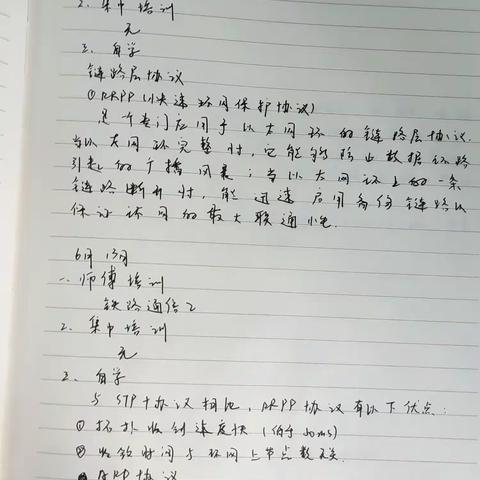 2. 集中培训
无
三. 自学
链路层协议
①RRPP (以快速环网保护协议)
是个专门应用于以太网环的链路层协议.
当以太网环完整时, 它能够防止数据环路
引起的广播风暴; 当以太网环上的一条
链路断开时, 能迅速启用备份链路以
保证环网的最大联通性.
6月13日
一. 师傅培训
铁路通信工
2. 集中培训
无
三. 自学
与STP协议相比, RRPP协议有以下优点:
①拓扑收敛速度快 (低于50ms)
②收敛时间与环网上节点数无关.
协议